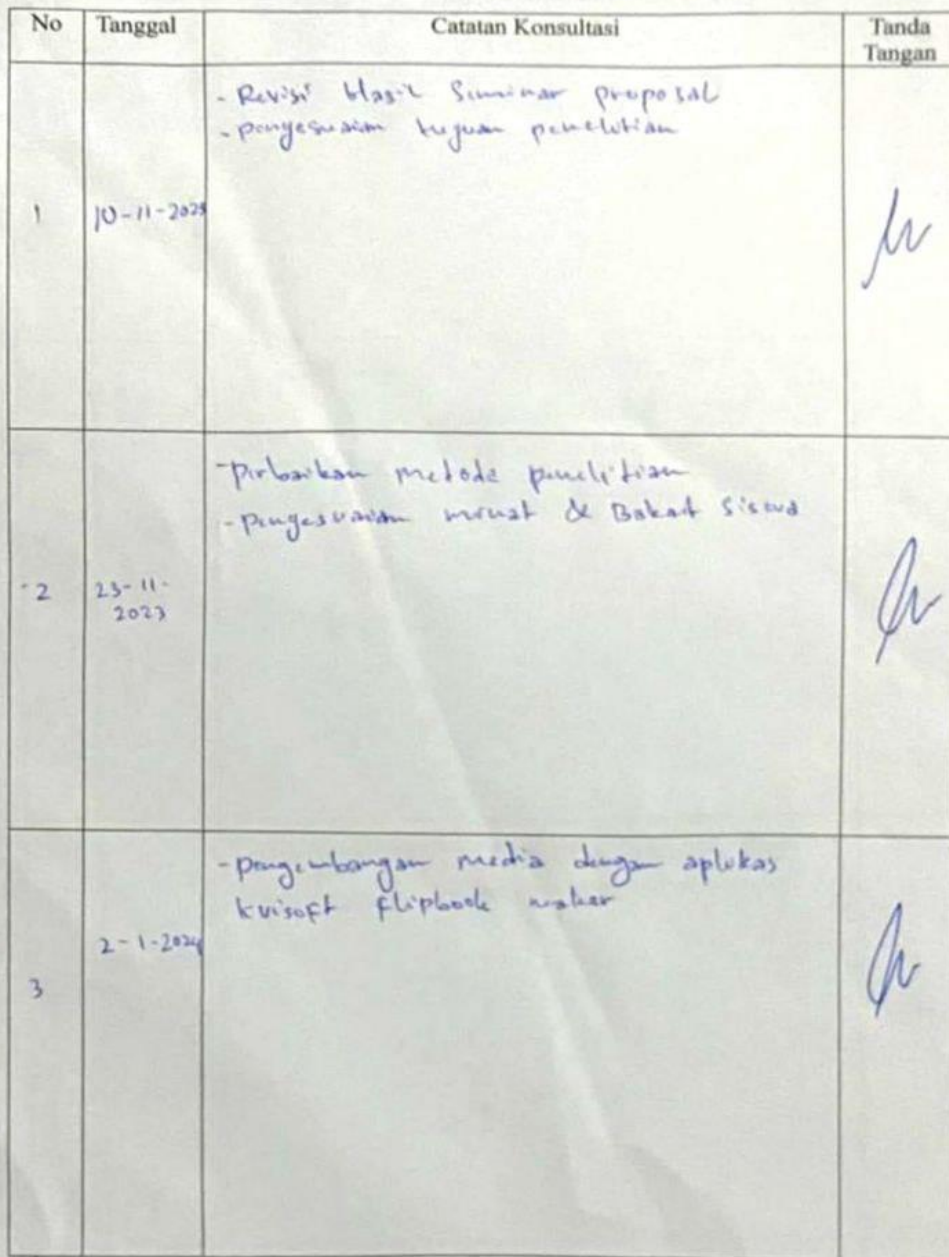 No Tanggal Catatan Konsultasi Tanda Tangan
- Revisi Hasil Seminar proposal
- penyesuaian tujuan penelitian
1 10-11-2023
- perbaikan metode penelitian
- penyesuaian minat & Bakat Siswa
2 23-11-
2023
- pengembangan media dengan aplikas
kvisoft flipbook maker
2-1-2024
3